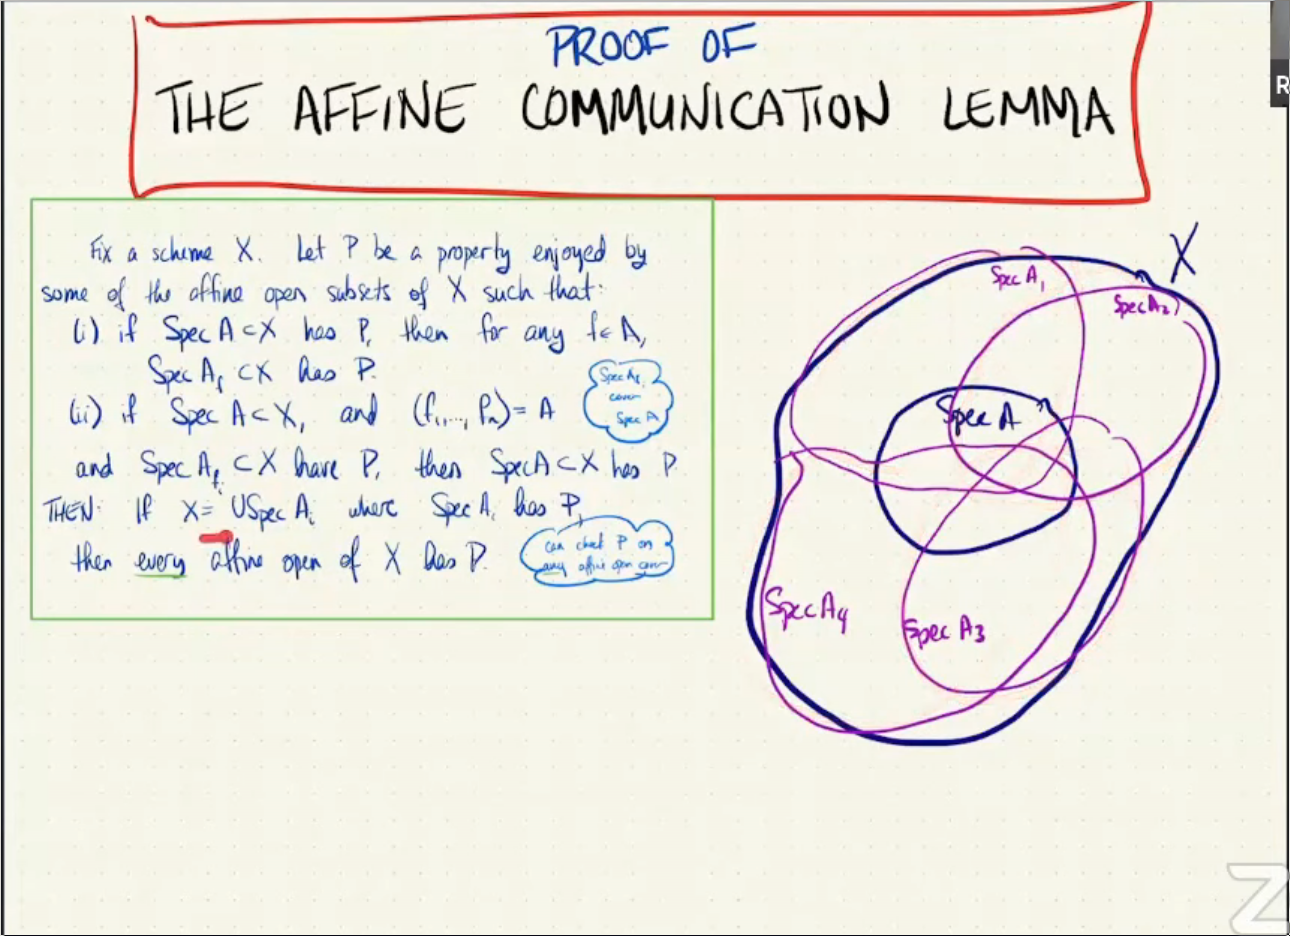 PROOF OF
THE AFFINE COMMUNICATION LEMMA
R
Fix a scheme X. Let P be a property enjoyed by
some of the affine open subsets of X such that:
(i) if Spec A ⊂ X has P, then for any f ∈ A,
Spec A_f ⊂ X has P.
(ii) if Spec A ⊂ X, and (f₁,..., fₙ) = A
Spec A_fᵢ
cover
Spec A
and Spec A_fᵢ ⊂ X have P, then Spec A ⊂ X has P.
THEN: If X = ∪ Spec Aᵢ where Spec Aᵢ has P,
then every affine open of X has P.
can check P on
any affine open cover
X
Spec A₁
Spec A₂
Spec A
Spec A₄
Spec A₃
Z